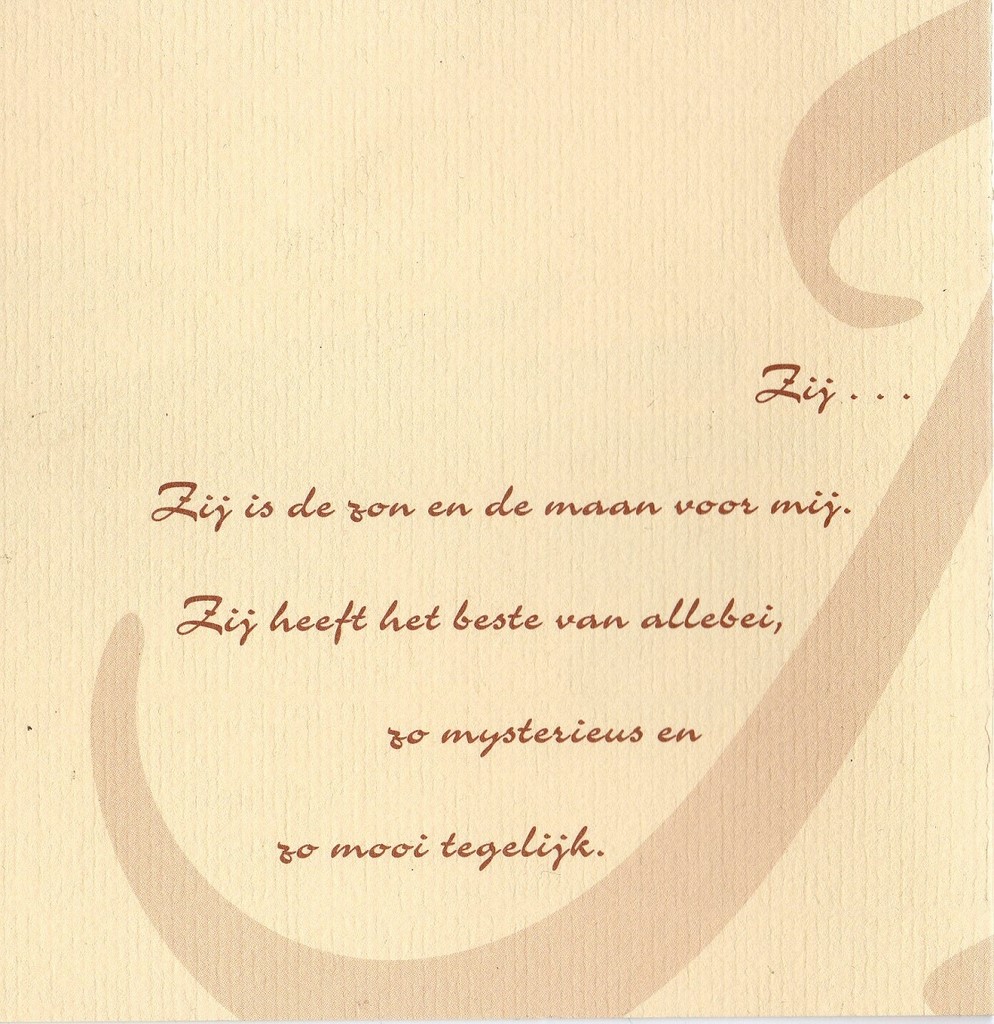 Zij . . .
Zij is de zon en de maan voor mij.
Zij heeft het beste van allebei,
zo mysterieus en
zo mooi tegelijk.